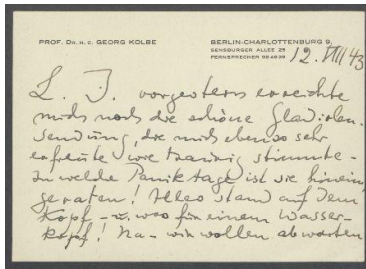 PROF. DR. H. C. GEORG KOLBE
BERLIN-CHARLOTTENBURG 9,
SENSBURGER ALLEE 25
FERNSPRECHER 994039
12. VIII 43
L. J. vorgestern erreichte
mich noch die schöne Gladiolen-
sendung, die mich ebenso sehr
erfreute wie traurig stimmte -
In welche Paniktage ist sie hinein
geraten! Alles stand auf dem
Kopf - u. was für einem Wasser-
kopf! Na - wir wollen abwarten